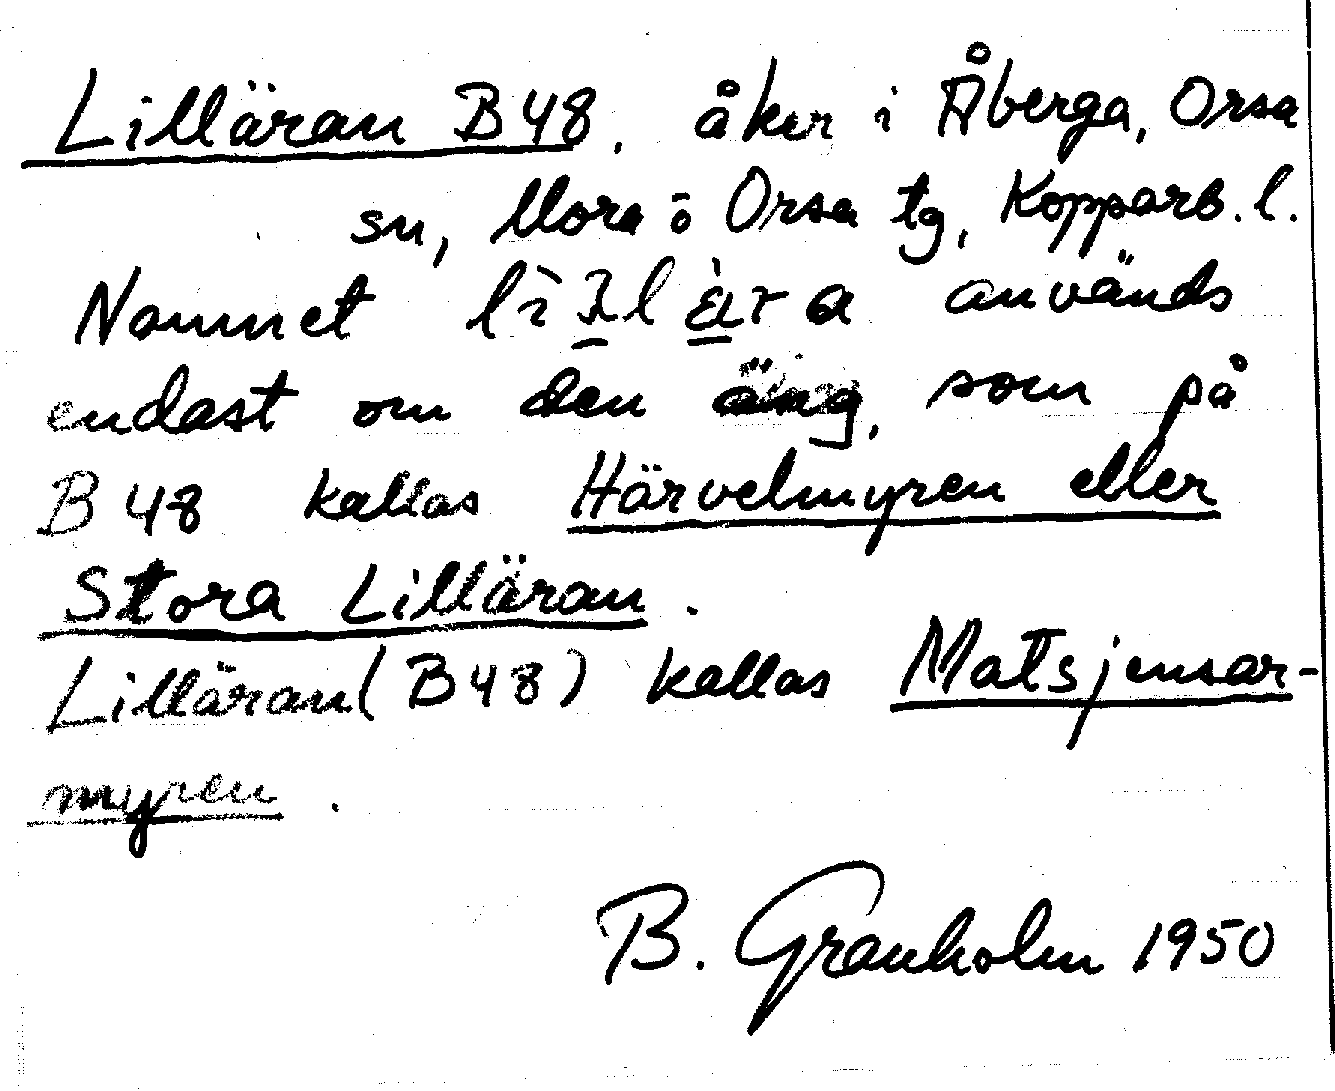 Lilläran B48. åker i Åberga, Orsa
sn, Mora o Orsa tg, Kopparb. l.
Namnet används
endast om den äng, som på
B 48 kallas Härvelmyren eller
Stora Lilläran.
Lilläran (B48) kallas Matsjensar-
myren.
B. Granholm 1950